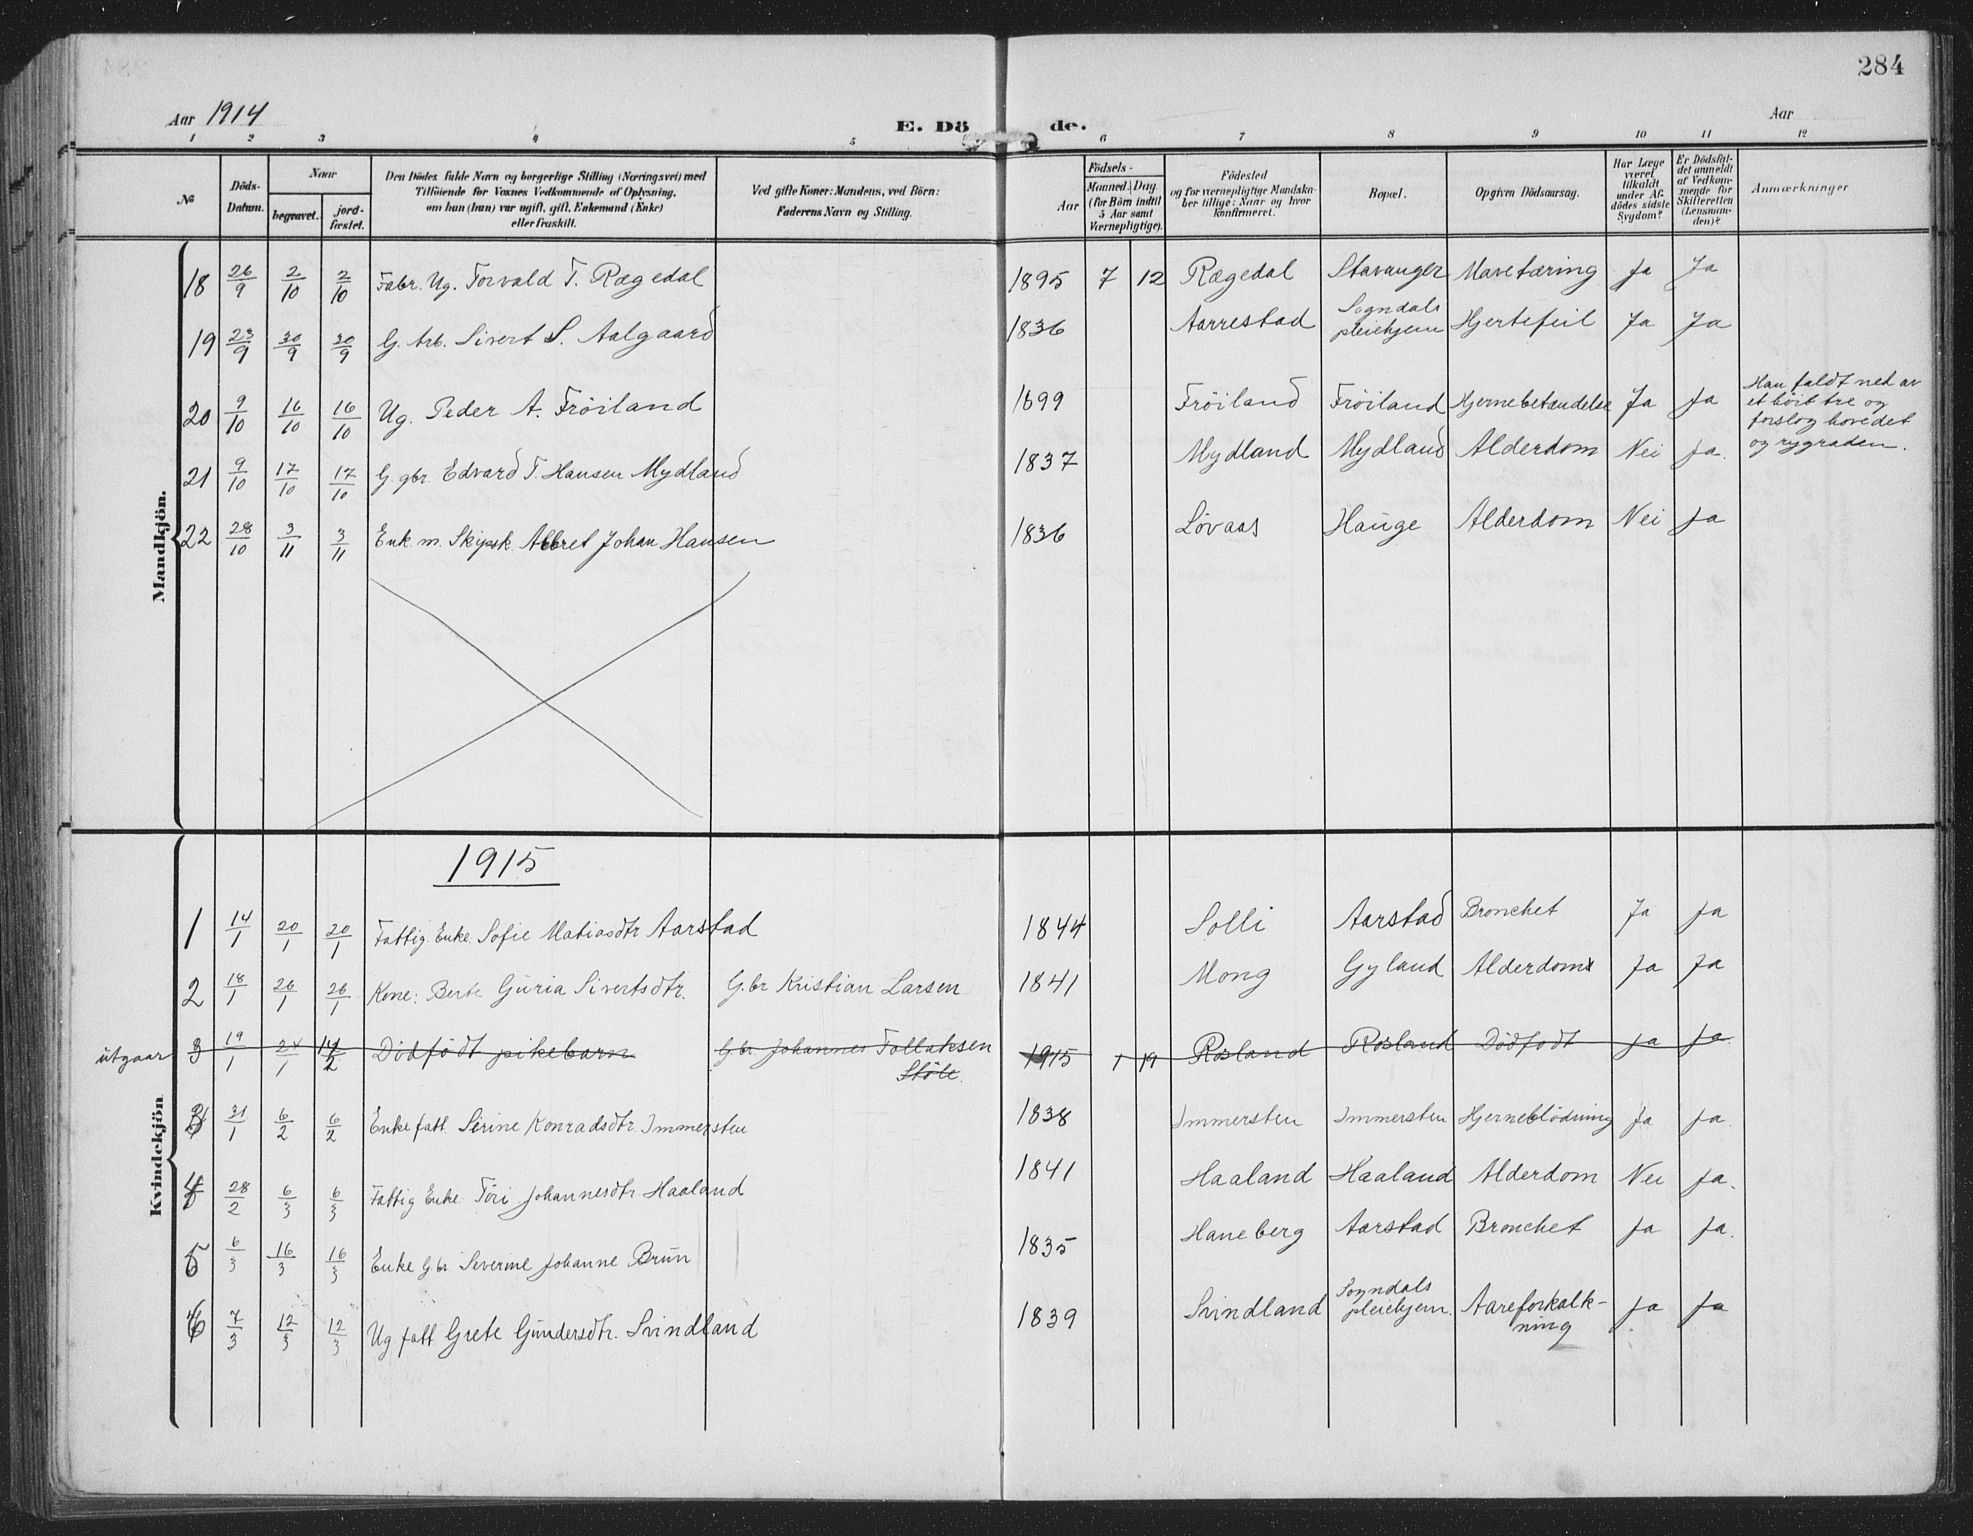 284
Aar 1914
E. Dö de.
Aar
1 2 3 4 5 6 7 8 9 10 11 12
№
Döds-
Datum.
Naar
begravet.
jord-
fæstet.
Den Dödes fulde Navn og borgerlige Stilling (Næringsvei) med
Tilföiende for Voxnes Vedkommende af Oplysning,
om han (hun) var ugift, gift, Enkemand (Enke)
eller fraskilt.
Ved gifte Koner: Mandens, ved Börn:
Faderens Navn og Stilling.
Födsels-
Aar
Maaned. Dag
(for Börn indtil
5 Aar samt
Værnepligtige).
Födested
og for værnepligtige Mandska-
ber tillige: Naar og hvor
konfirmeret.
Bopæl.
Opgiven Dödsaarsag.
Har Læge
været
tilkaldt
under Af-
dödes sidste
Sygdom?
Er Dödsfal-
det anmeldt
af Vedkom-
mende for
Skifteretten
(Lensman-
den)?
Anmærkninger
Mandkjön.
18 26/9 2/10 2/10 Fabr. Ug. Torvald T. Rægedal 1895 7 12 Rægedal Stavanger Mavetæring Ja Ja
19 23/9 30/9 30/9 G. Arb. Sivert S. Aalgaard 1836 Aarrestad Sogndals pleiehjem Hjertefeil Ja Ja
20 9/10 16/10 16/10 Ug. Peder A. Fröiland 1899 Fröiland Fröiland Hjernebetændelse Ja Ja
Han faldt ned av
et höit tre og
forslog hovedet
og rygraden.
21 9/10 17/10 17/10 G. gbr. Edvard T. Hansen Mydland 1837 Mydland Mydland Alderdom Nei Ja.
22 28/10 3/11 3/11 Enk. m. Skipsk. Albret Johan Hansen 1836 Løvaas Hauge Alderdom Nei Ja
Kvindekjön
1915
1 14/1 20/1 20/1 Fattig Enke. Sofie Matiasdtr Aarstad 1844 Solli Aarstad Bronchet Ja Ja
2 18/1 26/1 26/1 Kone: Berte Guria Sivertsdtr. G.br Kristian Larsen 1841 Mong Gyland Alderdom Ja Ja
utgaar 3 19/1 24/1 14/2 Dödfödt pikebarn G.br Johannes Tollaksen 1915 1 19 Rosland Rosland Dödfodt Ja Ja.
Stöle.
3 31/1 6/2 6/2 Enke fatt. Serine Konradsdtr. Immersten 1838 Immersten Immersten Hjerneblödning Ja Ja.
4 28/2 6/3 6/3 Fattig Enke. Töri Johannesdtr Haaland 1841 Haaland Haaland Alderdom Nei Ja.
5 6/3 16/3 16/3 Enke G.br Severine Johanne Brun 1835 Haneberg Aarstad Bronchet Ja Ja.
6 7/3 12/3 12/3 Ug fatt Grete Gundersdtr. Svindland 1839 Svindland Sogndals pleiehjem. Aareforkalk- Ja Ja
ning